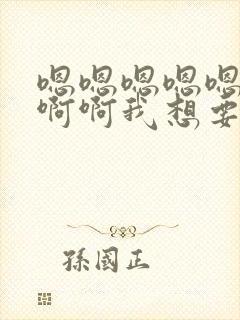 嗯嗯嗯嗯嗯
啊啊我想要
孫國正